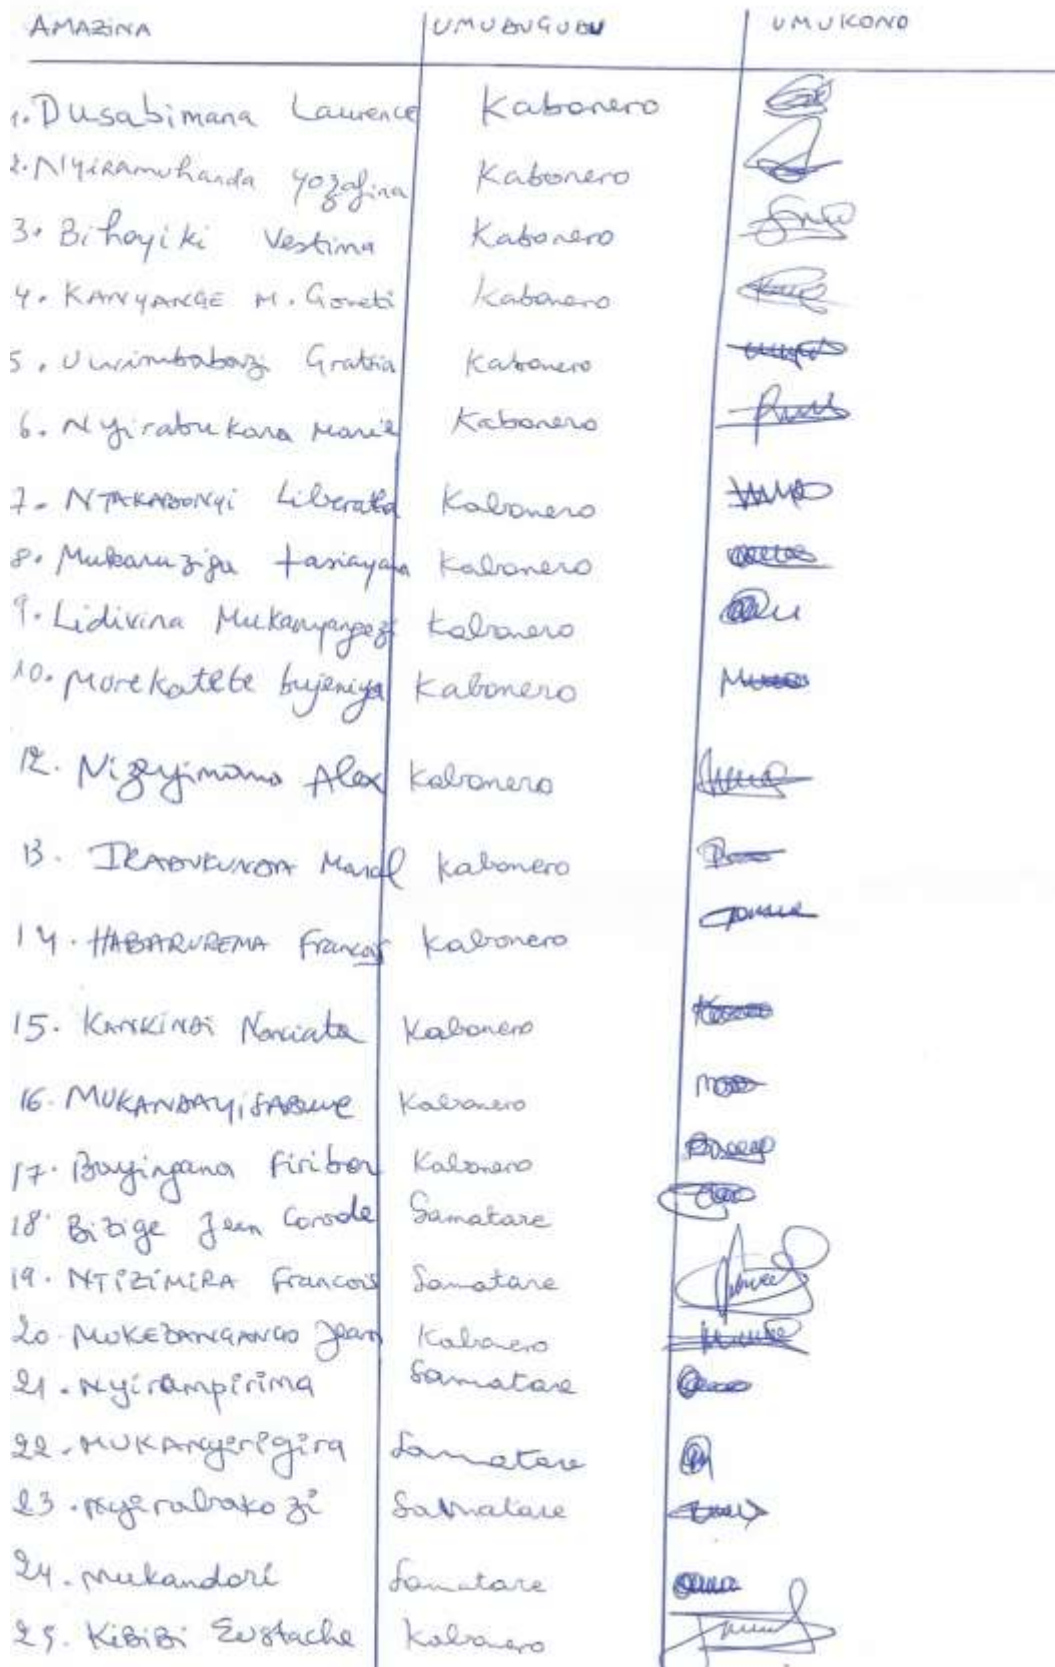 AMAZINA UMUDUGUDU UMUKONO
1. Dusabimana Laurence Kabonero
2. Nyiramuhanda yozafina Kabonero
3. Bihoyiki Vestina Kabonero
4. KANYANGE M. Goreti Kabonero
5. Uwimbabazi Gratia Kabonero
6. Nyirabukara Marie Kabonero
7. NTAKABONYI Liberata Kabonero
8. Mukaruziga tasiayana Kabonero
9. Lidivina Mukanyangezi Kabonero
10. Morekatete bujeniya Kabonero
12. Nizeyimana Alex Kabonero
13. IRADUKUNDA Kabonero
14. HABARUREMA Francois Kabonero
15. KANKINDI Kabonero
16. MUKANDAYISABWE Kabonero
17. Bayingana Firibert Kabonero
18. Bizige Jean Samatare
19. NTIZIMIRA Francois Samatare
20. MUKEZANGANGO Jean Kabonero
21. Nyirampirima Samatare
22. MUKANYIRIGIRA Samatare
23. Nyirabakozi Samatare
24. Mukandori Samatare
25. KiBiBi Eustache Kabonero